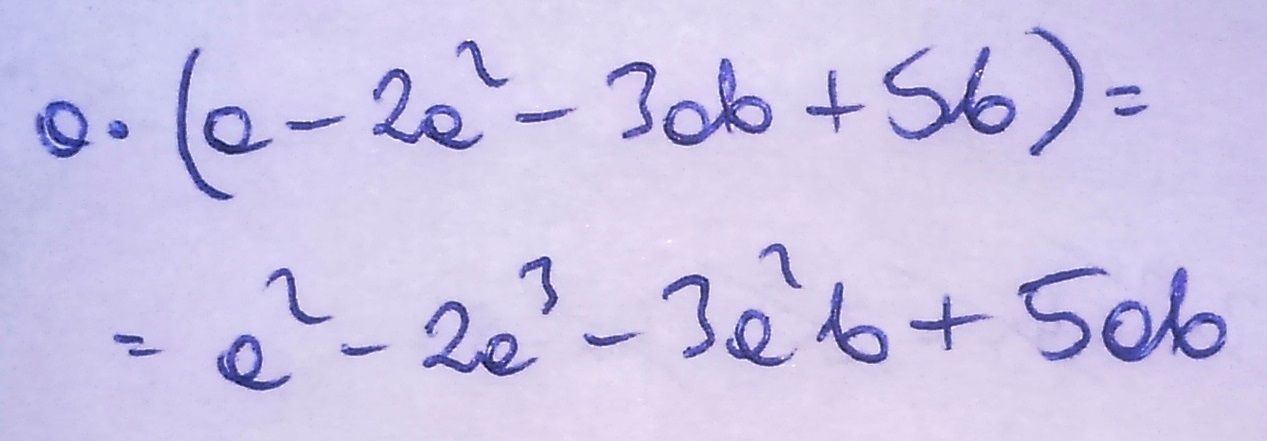 a·(a-2a²-3ab+5b)=
=a²-2a³-3a²b+5ab